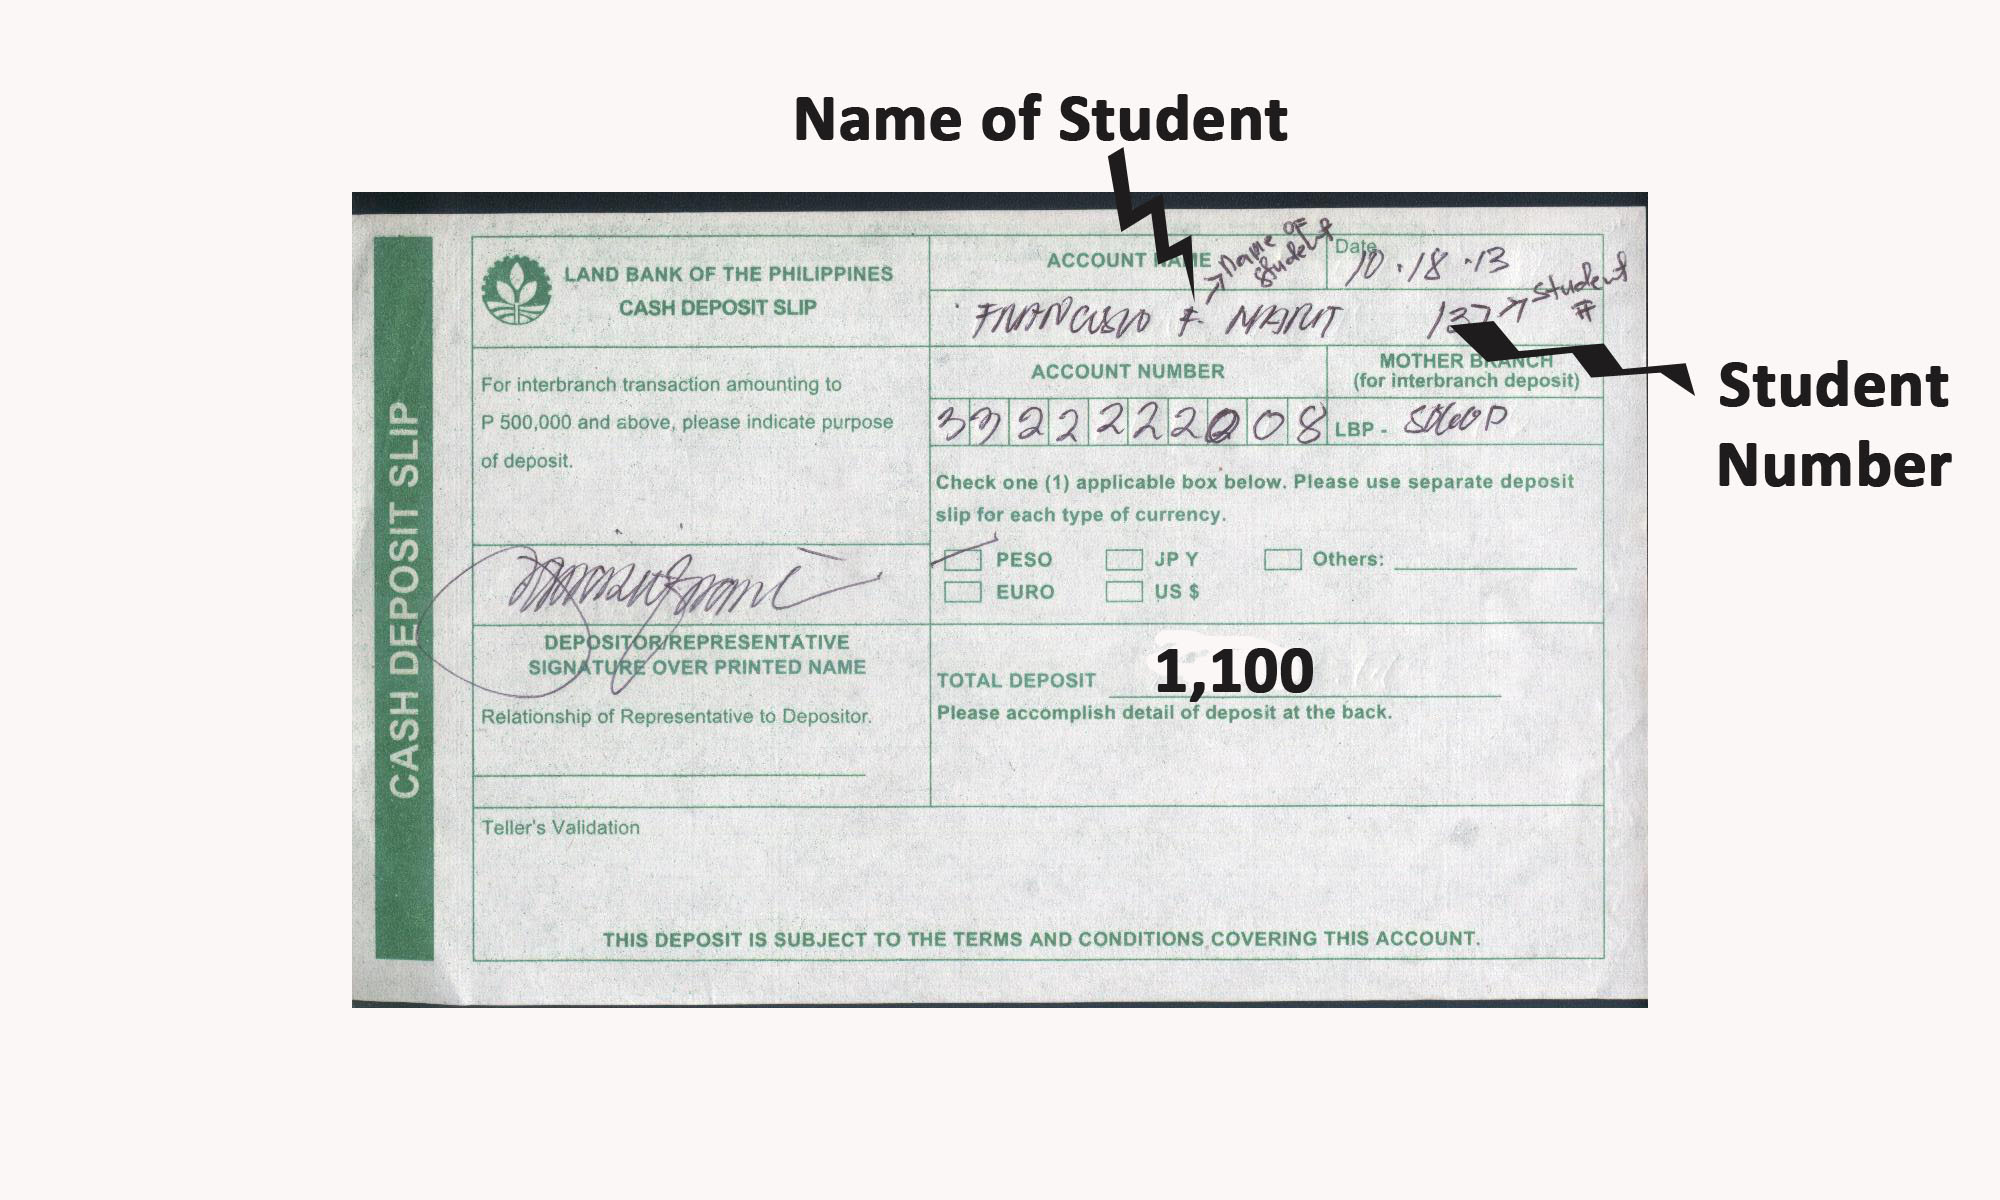 Name of Student
CASH DEPOSIT SLIP
LAND BANK OF THE PHILIPPINES
CASH DEPOSIT SLIP
ACCOUNT NAME
→ Name of
Student
Date
10.18.13
FRANCISCO F.
137 → Student
#
Student
Number
For interbranch transaction amounting to
P 500,000 and above, please indicate purpose
of deposit.
ACCOUNT NUMBER
MOTHER BRANCH
(for interbranch deposit)
LBP -
Check one (1) applicable box below. Please use separate deposit
slip for each type of currency.
PESO JP Y Others:
EURO US $
DEPOSITOR/REPRESENTATIVE
SIGNATURE OVER PRINTED NAME
Relationship of Representative to Depositor.
TOTAL DEPOSIT 1,100
Please accomplish detail of deposit at the back.
Teller's Validation
THIS DEPOSIT IS SUBJECT TO THE TERMS AND CONDITIONS COVERING THIS ACCOUNT.